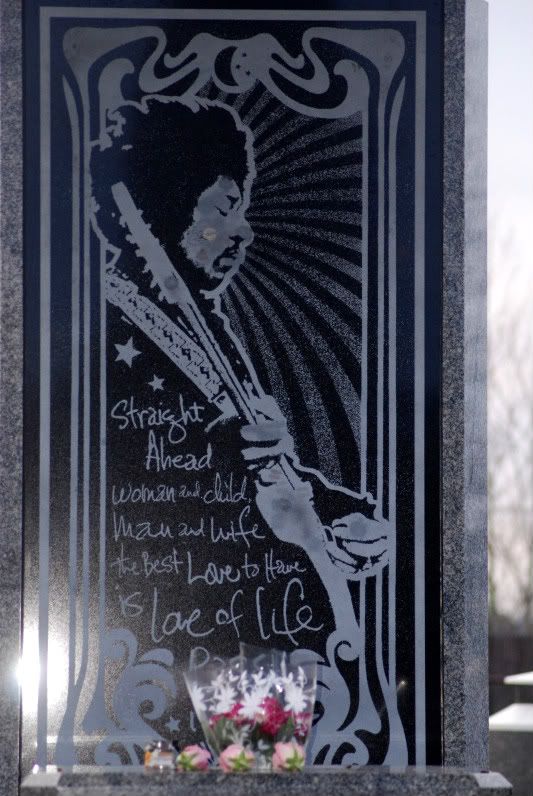 Straight
Ahead
woman and child,
man and wife
the Best Love to Have
is Love of Life